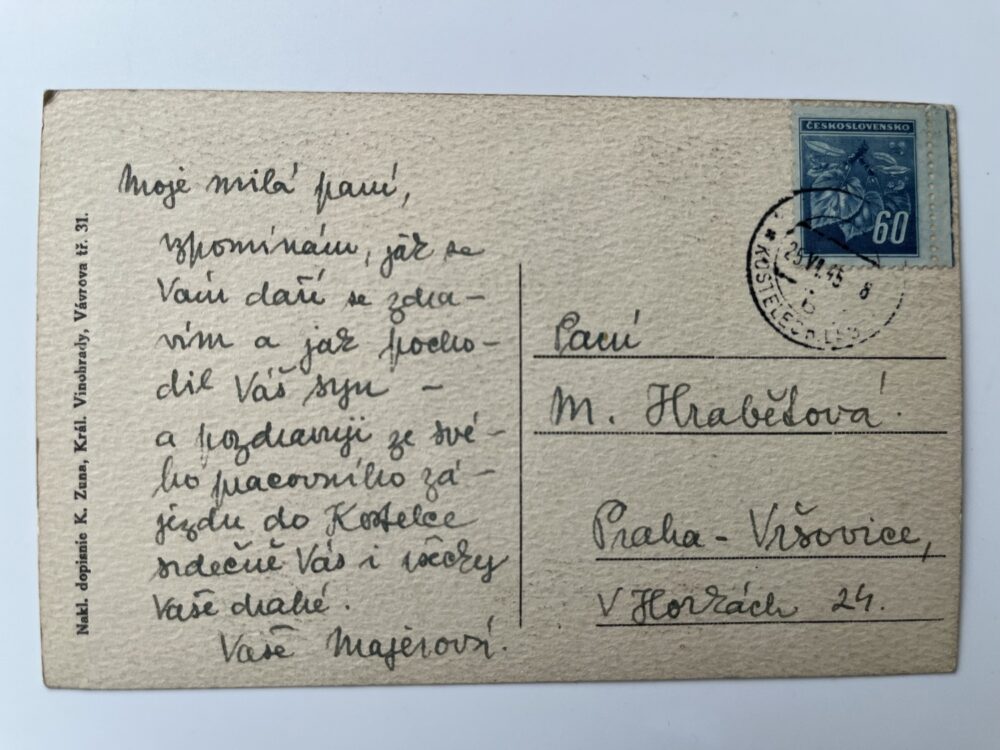 Nakl. dopisnic K. Zuna, Král. Vinohrady, Vávrova tř. 31.
Moje milá paní,
vzpomínám, jak se
Vám daří se zdra-
vím a jak pocho-
dil Váš syn –
a pozdravuji ze své-
ho pracovního zá-
jezdu do Kostelce
srdečně Vás i všechny
Vaše drahé.
Vaše Majerová.
ČESKOSLOVENSKO
60
KOSTELEC
25 VI. 45 8
Paní
M. Hrabětová.
Praha – Vršovice,
V Horkách 24.